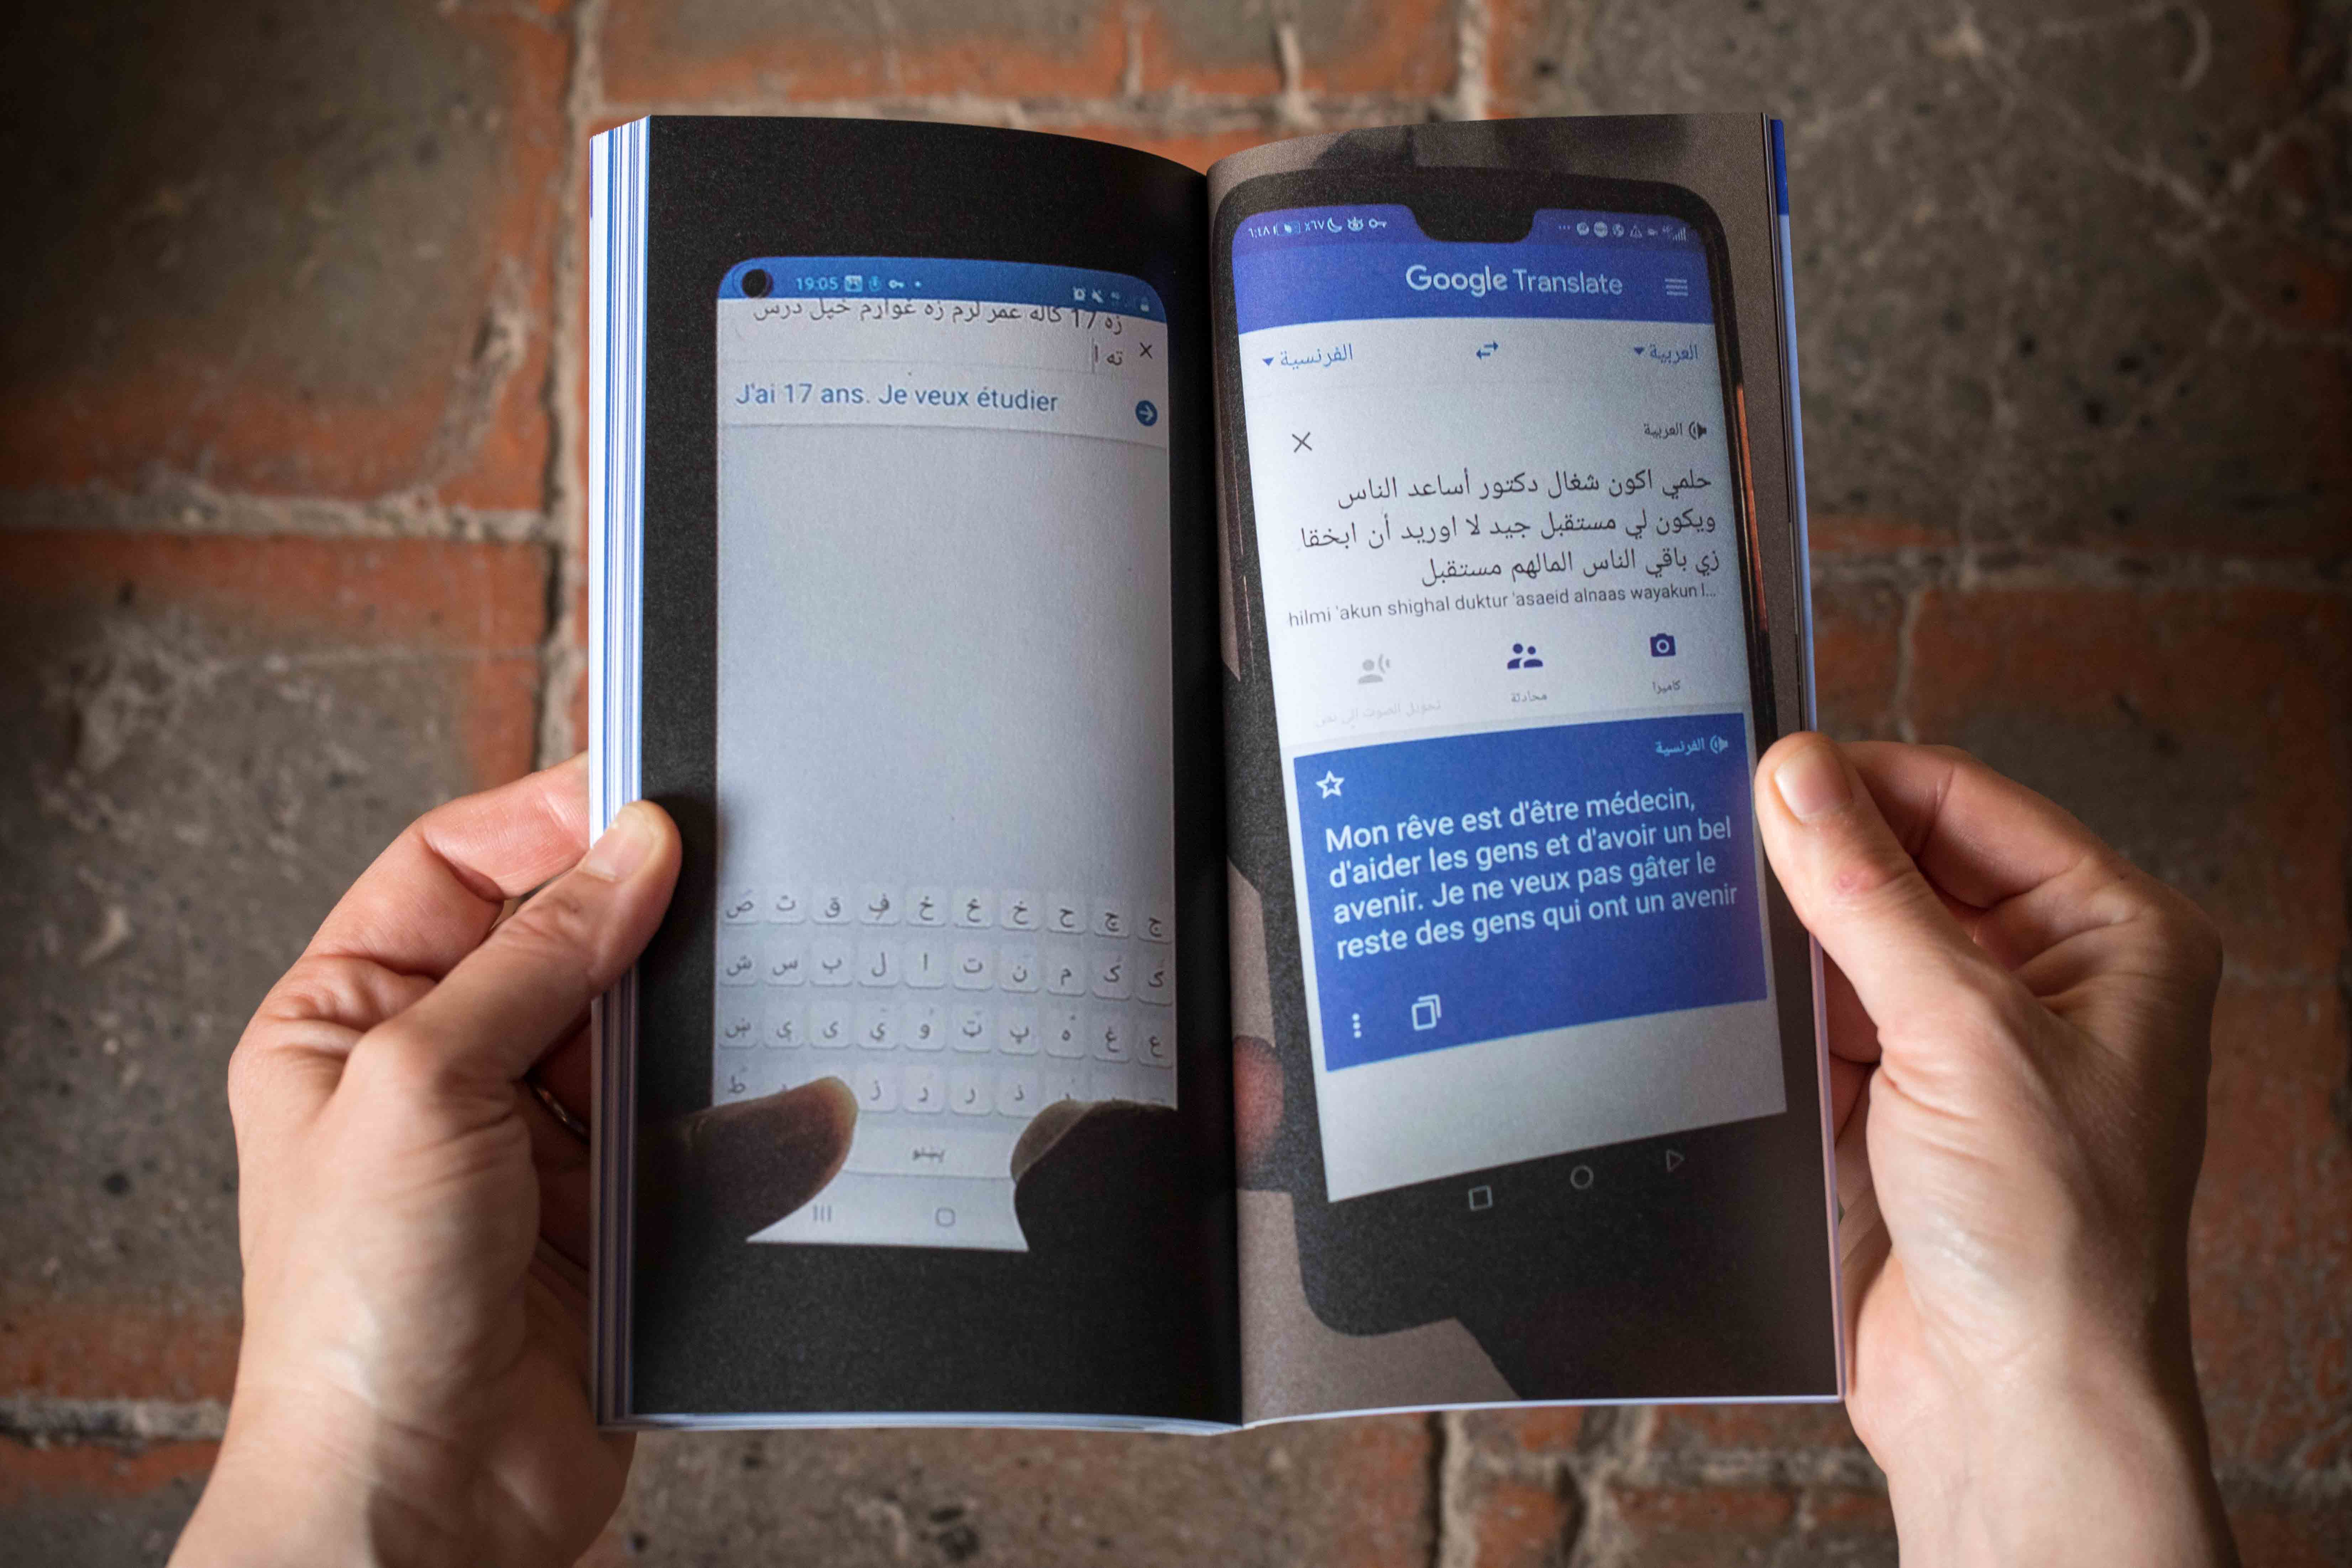 19:05
زه 17 کاله عمر لرم زه غواړم خپل درس
ته ا
J'ai 17 ans. Je veux étudier
ص ث ق ف خ ع خ ح چ ج
ش س ب ل ا ت ن م ک ګ
پښتو
Google Translate
العربية
الفرنسية
العربية
حلمي اكون شغال دكتور أساعد الناس
ويكون لي مستقبل جيد لا اوريد أن ابخقا
زي باقي الناس المالهم مستقبل
hilmi 'akun shighal duktur 'asaeid alnaas wayakun l...
كاميرا
محادثة
تحويل الصوت إلى نص
الفرنسية
Mon rêve est d'être médecin,
d'aider les gens et d'avoir un bel
avenir. Je ne veux pas gâter le
reste des gens qui ont un avenir